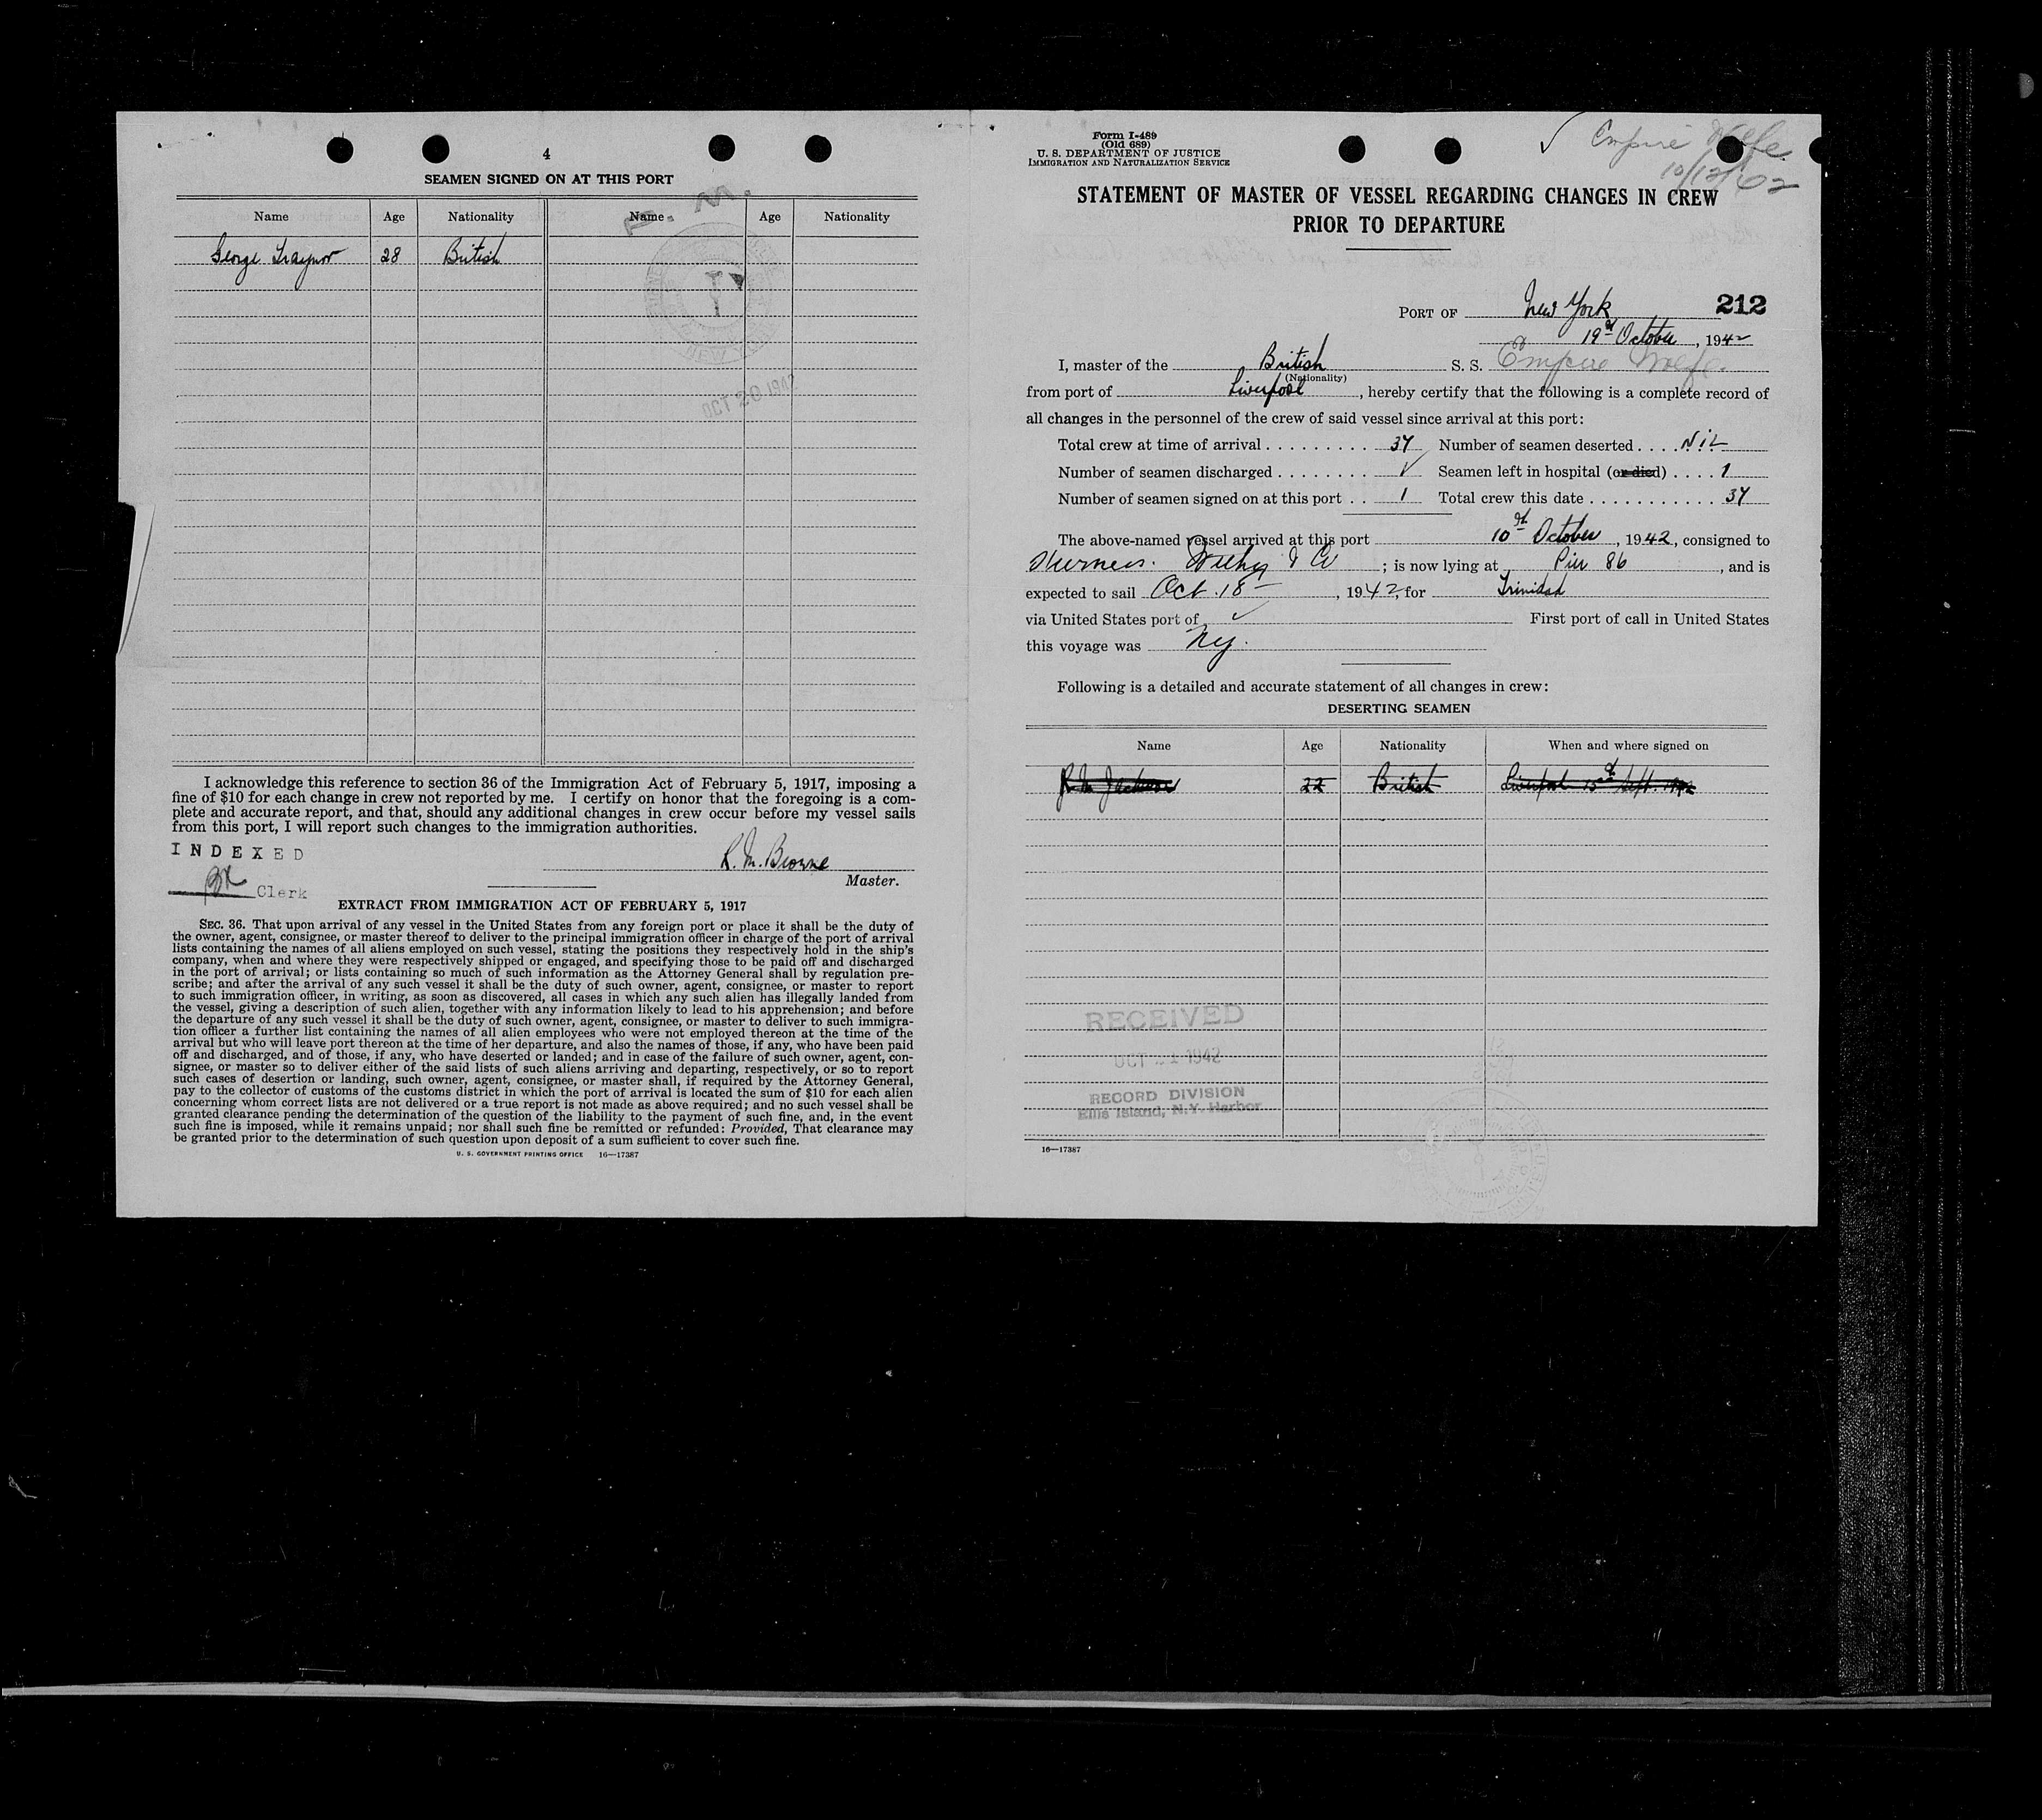 4
SEAMEN SIGNED ON AT THIS PORT
Name Age Nationality Name Age Nationality
George Traynor 28 British
OCT 20 1942
I acknowledge this reference to section 36 of the Immigration Act of February 5, 1917, imposing a
fine of $10 for each change in crew not reported by me. I certify on honor that the foregoing is a com-
plete and accurate report, and that, should any additional changes in crew occur before my vessel sails
from this port, I will report such changes to the immigration authorities.
INDEXED
R. M. Browne
Clerk
Master.
EXTRACT FROM IMMIGRATION ACT OF FEBRUARY 5, 1917
SEC. 36. That upon arrival of any vessel in the United States from any foreign port or place it shall be the duty of
the owner, agent, consignee, or master thereof to deliver to the principal immigration officer in charge of the port of arrival
lists containing the names of all aliens employed on such vessel, stating the positions they respectively hold in the ship's
company, when and where they were respectively shipped or engaged, and specifying those to be paid off and discharged
in the port of arrival; or lists containing so much of such information as the Attorney General shall by regulation pre-
scribe; and after the arrival of any such vessel it shall be the duty of such owner, agent, consignee, or master to report
to such immigration officer, in writing, as soon as discovered, all cases in which any such alien has illegally landed from
the vessel, giving a description of such alien, together with any information likely to lead to his apprehension; and before
the departure of any such vessel it shall be the duty of such owner, agent, consignee, or master to deliver to such immigra-
tion officer a further list containing the names of all alien employees who were not employed thereon at the time of the
arrival but who will leave port thereon at the time of her departure, and also the names of those, if any, who have been paid
off and discharged, and of those, if any, who have deserted or landed; and in case of the failure of such owner, agent, con-
signee, or master so to deliver either of the said lists of such aliens arriving and departing, respectively, or so to report
such cases of desertion or landing, such owner, agent, consignee, or master shall, if required by the Attorney General,
pay to the collector of customs of the customs district in which the port of arrival is located the sum of $10 for each alien
concerning whom correct lists are not delivered or a true report is not made as above required; and no such vessel shall be
granted clearance pending the determination of the question of the liability to the payment of such fine, and, in the event
such fine is imposed, while it remains unpaid; nor shall such fine be remitted or refunded: Provided, That clearance may
be granted prior to the determination of such question upon deposit of a sum sufficient to cover such fine.
U. S. GOVERNMENT PRINTING OFFICE 16—17387
Form I-489
(Old 689)
U. S. DEPARTMENT OF JUSTICE
IMMIGRATION AND NATURALIZATION SERVICE
Empire Wolfe
STATEMENT OF MASTER OF VESSEL REGARDING CHANGES IN CREW
PRIOR TO DEPARTURE
PORT OF New York 212
19th October, 1942
I, master of the British S. S. Empire Wolfe
(Nationality)
from port of Liverpool, hereby certify that the following is a complete record of
all changes in the personnel of the crew of said vessel since arrival at this port:
Total crew at time of arrival . . . . . . . . . . 37 Number of seamen deserted . . . . Nil
Number of seamen discharged . . . . . . . . ✓ Seamen left in hospital (or died) . . . . 1
Number of seamen signed on at this port . . 1 Total crew this date . . . . . . . . . . . . 37
The above-named vessel arrived at this port 10th October, 1942, consigned to
Withy & Co; is now lying at Pier 86, and is
expected to sail Oct. 18, 1942, for Trinidad
via United States port of ✓ First port of call in United States
this voyage was NY.
Following is a detailed and accurate statement of all changes in crew:
DESERTING SEAMEN
Name Age Nationality When and where signed on
R. M. Jackson 22 British Liverpool 15th Sept. 1942
RECEIVED
OCT 1942
RECORD DIVISION
Ellis Island, N.Y. Harbor
16—17387